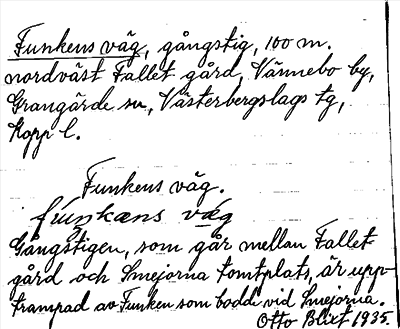 Funkens väg, gångstig, 100 m.
nordväst Fallet gård, Vännebo by,
Grangärde sn, Västerbergslags tg,
Kopp l.
Funkens väg.
fuŋkæns væg
Gångstigen, som går mellan Fallet
gård och Smejorna tomtplats, är upp-
trampad av Funken som bodde vid Smejorna.
Otto Blixt 1935.